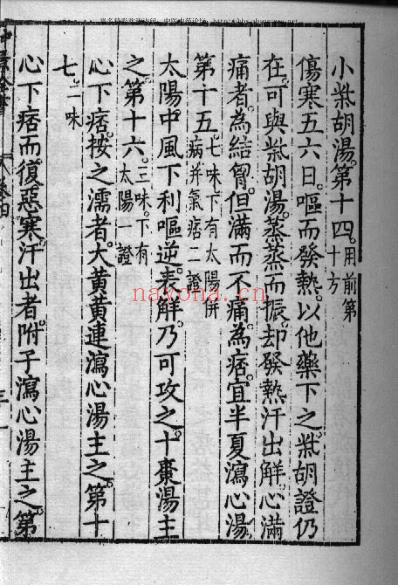 小柴胡湯。第十四。用前第十方
傷寒五六日。嘔而發熱。以他藥下之。柴胡證仍
在。可與柴胡湯。蒸蒸而振。却發熱汗出解。心滿
痛者。為結胷。但滿而不痛。為痞。宜半夏瀉心湯。
第十五。七味。下有太陽併病。并氣痞二證
太陽中風下利嘔逆。表解乃可攻之。十棗湯主
之。第十六。三味。下有太陽一證
心下痞。按之濡者。大黃黃連瀉心湯主之。第十
七。二味
心下痞而復惡寒。汗出者。附子瀉心湯主之。第
nayona.cn